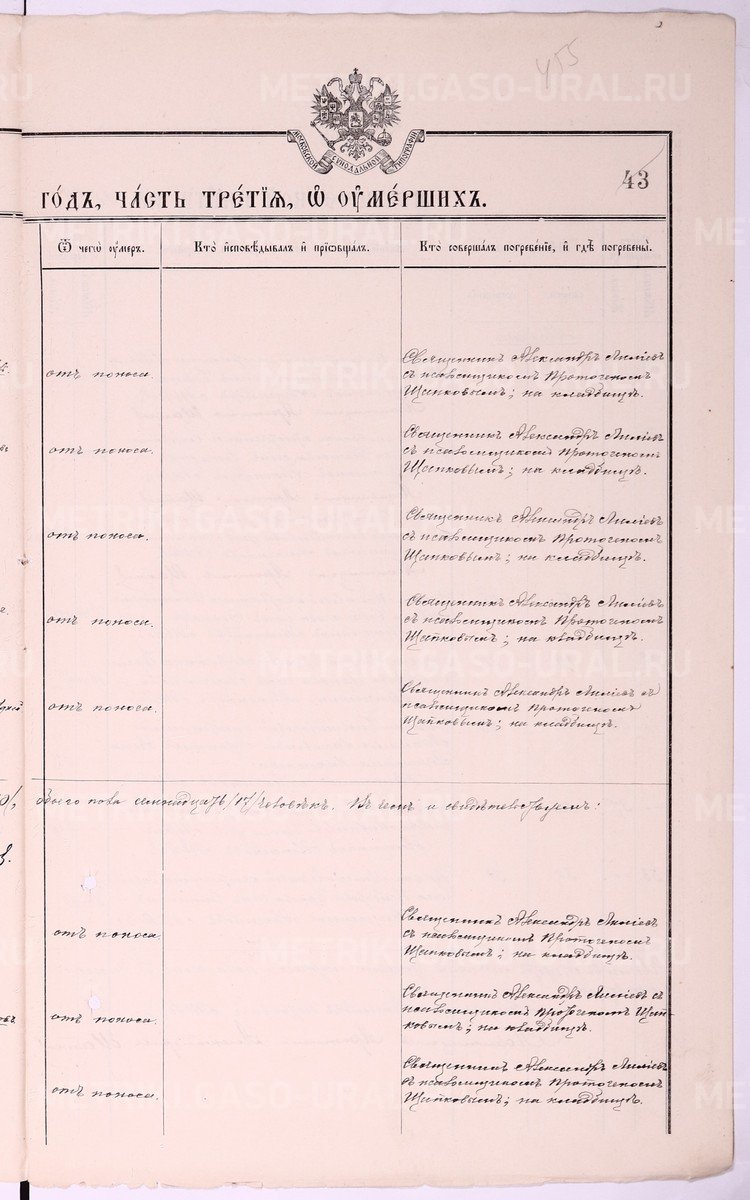 455
МОСКОВСКОЙ СѴНОДАЛЬНОЙ ТИПОГРАФІИ
43
ГО́ДЪ, ЧА́СТЬ ТРЕ́ТІѦ, Ѽ ОУ҆МЕ́РШИХЪ.
Ѿ чегѡ̀ оу҆́меръ.
Кто̀ и҆сповѣ́дывалъ и҆ прїѡбща́лъ.
Кто̀ соверша́лъ погребе́нїе, и҆ гдѣ̀ погребены̀.
отъ поноса
Священникъ Александръ
съ псаломщикомъ Протогеномъ
Щипковымъ; на кладбищѣ.
отъ поноса.
Священникъ Александръ
съ псаломщикомъ Протогеномъ
Щипковымъ; на кладбищѣ.
отъ поноса.
Священникъ Александръ
съ псаломщикомъ Протогеномъ
Щипковымъ; на кладбищѣ.
отъ поноса.
Священникъ Александръ
съ псаломщикомъ Протогеномъ
Щипковымъ; на кладбищѣ.
отъ поноса.
Священникъ Александръ съ
псаломщикомъ Протогеномъ
Щипковымъ; на кладбищѣ.
Всего пола семнадцать /17/ человѣкъ. Въ чемъ и свидѣтельствуемъ:
отъ поноса
Священникъ Александръ
съ псаломщикомъ Протогеномъ
Щипковымъ; на кладбищѣ.
отъ поноса.
Священникъ Александръ съ
псаломщикомъ Протогеномъ Щип-
ковымъ; на кладбищѣ.
отъ поноса.
Священникъ Александръ
съ псаломщикомъ Протогеномъ
Щипковымъ; на кладбищѣ.
METRIKI.GASO-URAL.RU